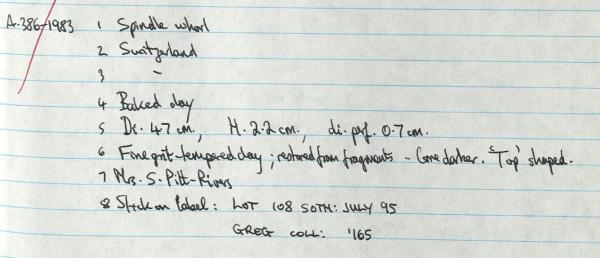 A.386-1983 1 Spindle whorl
2 Switzerland
3 -
4 Baked clay
5 Di. 4.7 cm., H. 2.2 cm., di. perf. 0.7 cm.
6 Fine grit-tempered clay; restored from fragments - Core darker. 'Top' shaped.
7 Mrs. S. Pitt-Rivers
8 Stuck on label: LOT 108 SOTH: JULY 95
GREG COLL: '165